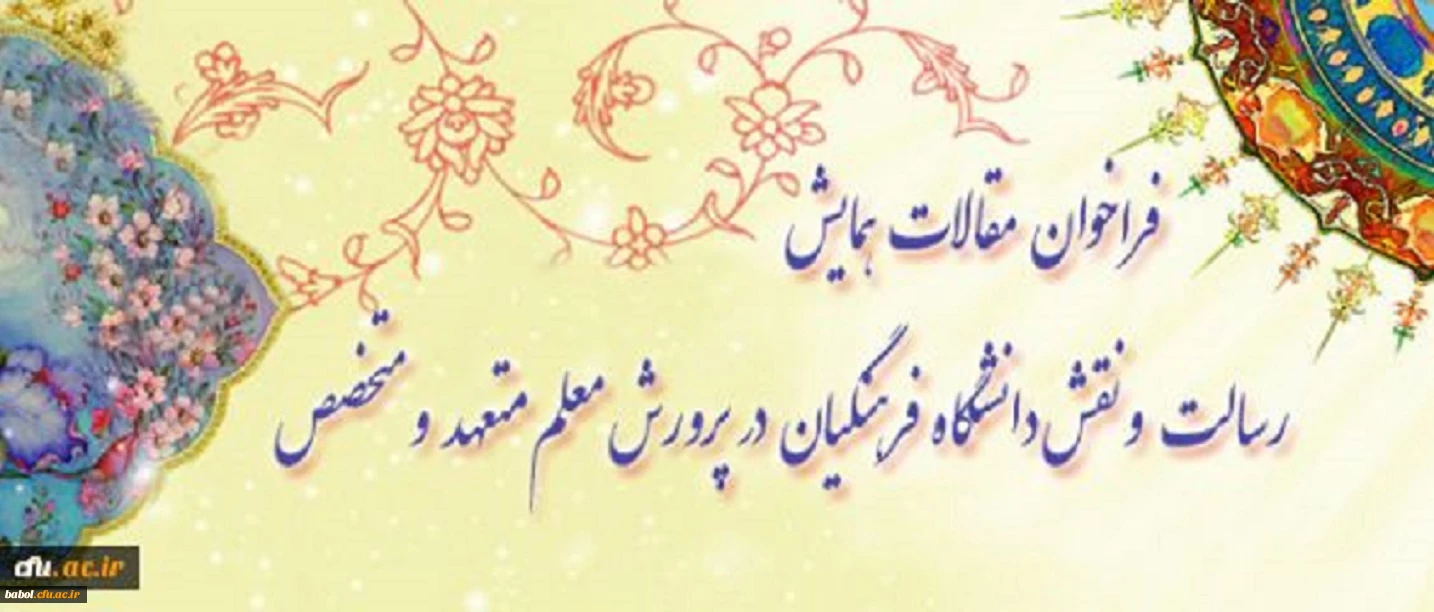 فراخوان مقالات همایش
رسالت و نقش دانشگاه فرهنگیان در پرورش معلم متعهد و متخصص
cfu.ac.ir
babol.cfu.ac.ir